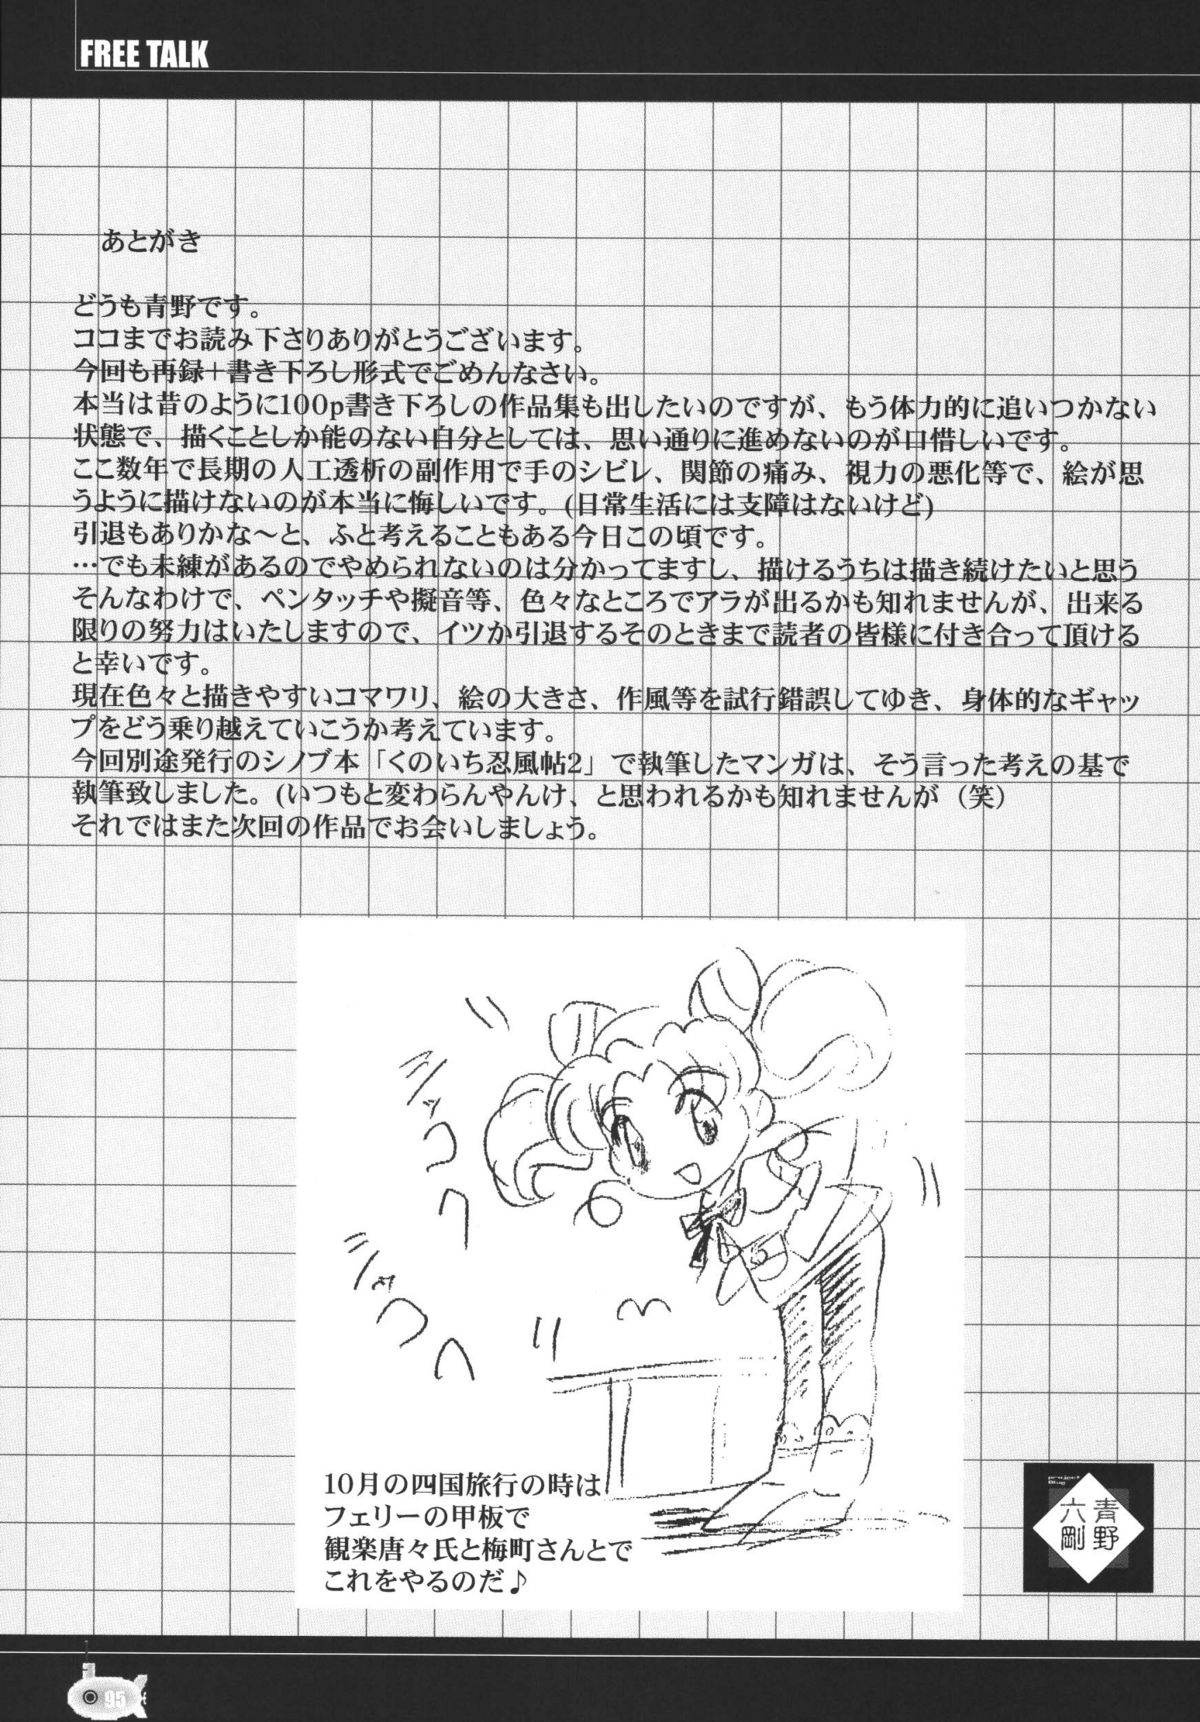 FREE TALK
あとがき
どうも青野です。
ココまでお読み下さりありがとうございます。
今回も再録＋書き下ろし形式でごめんなさい。
本当は昔のように100p書き下ろしの作品集も出したいのですが、もう体力的に追いつかない
状態で、描くことしか能のない自分としては、思い通りに進めないのが口惜しいです。
ここ数年で長期の人工透析の副作用で手のシビレ、関節の痛み、視力の悪化等で、絵が思
うように描けないのが本当に悔しいです。(日常生活には支障はないけど)
引退もありかな〜と、ふと考えることもある今日この頃です。
…でも未練があるのでやめられないのは分かってますし、描けるうちは描き続けたいと思う
そんなわけで、ペンタッチや擬音等、色々なところでアラが出るかも知れませんが、出来る
限りの努力はいたしますので、イツか引退するそのときまで読者の皆様に付き合って頂ける
と幸いです。
現在色々と描きやすいコマワリ、絵の大きさ、作風等を試行錯誤してゆき、身体的なギャッ
プをどう乗り越えていこうか考えています。
今回別途発行のシノブ本「くのいち忍風帖2」で執筆したマンガは、そう言った考えの基で
執筆致しました。(いつもと変わらんやんけ、と思われるかも知れませんが（笑）
それではまた次回の作品でお会いしましょう。
シャコ
ヘ
シャコ
ヘ
10月の四国旅行の時は
フェリーの甲板で
観楽唐々氏と梅町さんとで
これをやるのだ♪
project
青野
六剛
95